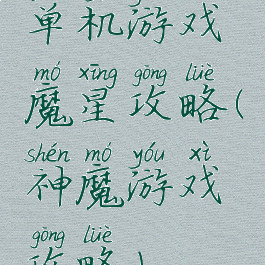 单机游戏
mó xīng gōng lüè
魔星攻略(
shén mó yóu xì
神魔游戏
gōng lüè
攻略)